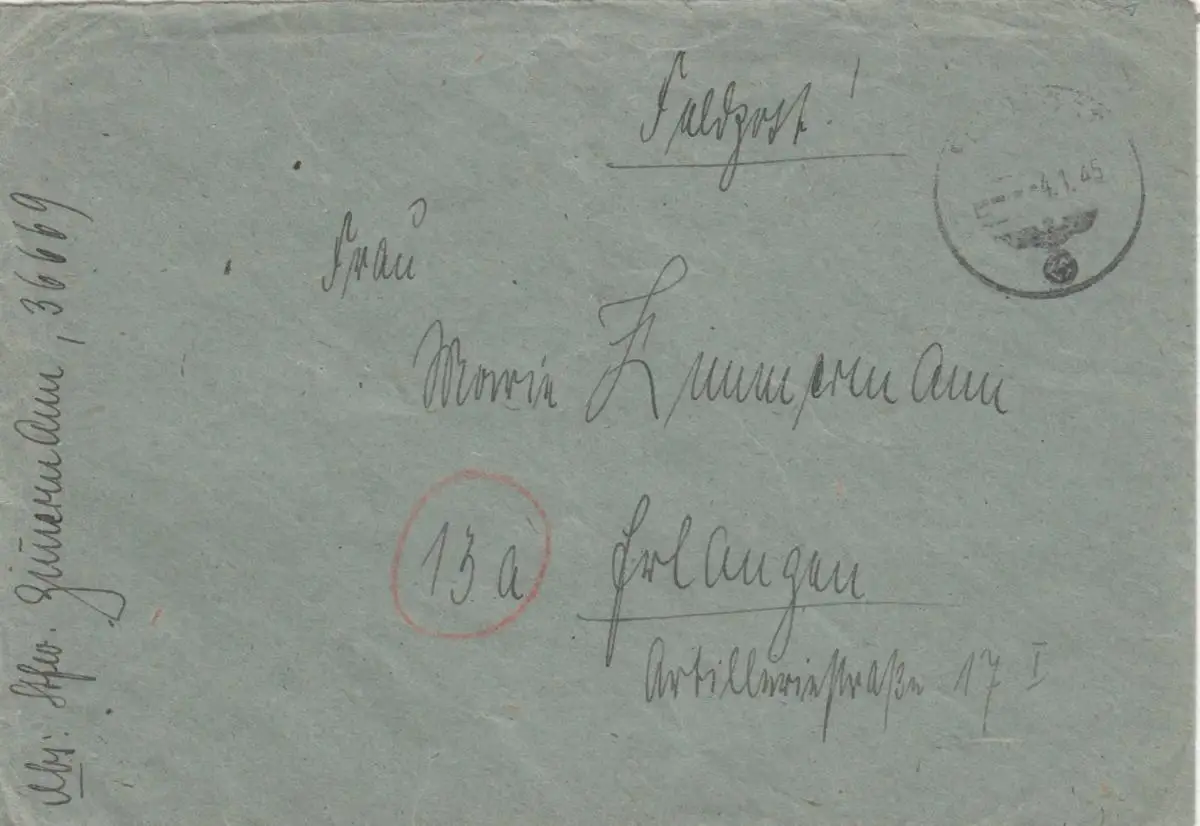 Feldpost!
4.1.45
Frau
Marie Zimmermann
13a Erlangen
Artilleriestraße 17 I
Abs: Stfw. Zimmermann, 36669